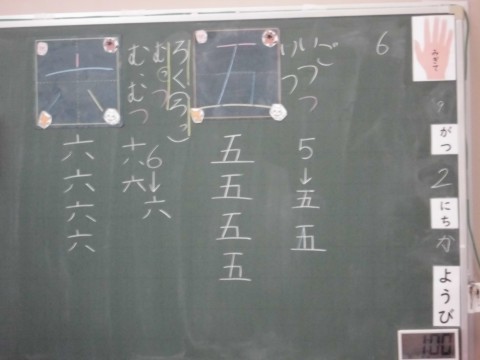 みぎて
がつ
2
にち
か
ようび
100
6
ご
いつつ
いつ
5→五 五
五
五 五 五 五
ろくろっこ
むっつ
む、むつ
6→六
六 六
六
六 六 六 六